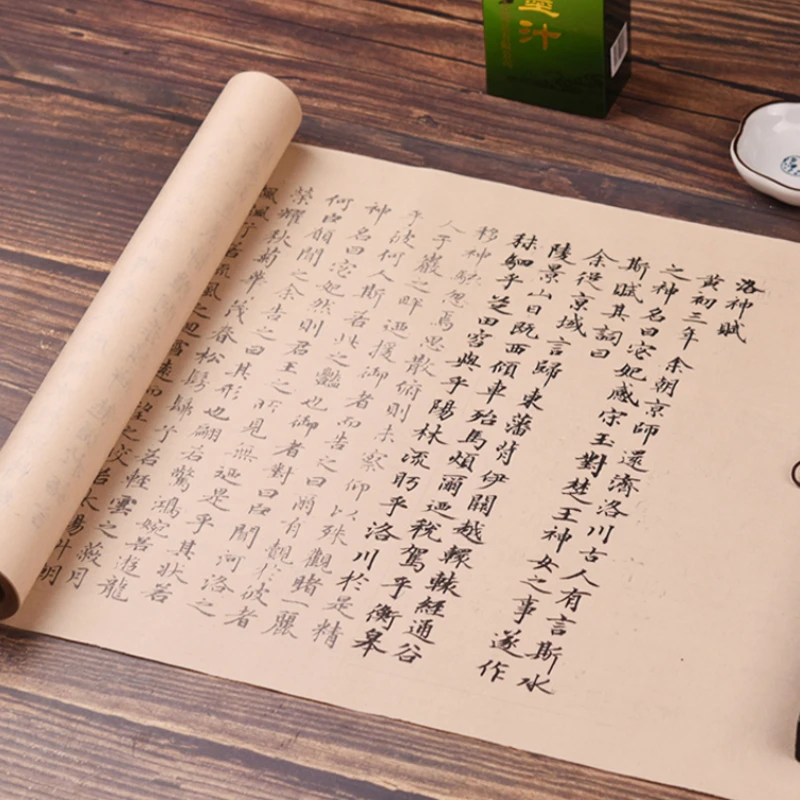 洛神賦
黃初三年余朝京師還濟洛川古人有言斯水
之神名曰宓妃感宗玉對楚王神女之事遂作
斯賦其詞曰
余從京域言歸東藩背伊闕越轘轅經通谷
陵景山日既西傾車殆馬煩爾迺稅駕乎衡皋
秣駟乎芝田容與乎陽林流眄乎洛川於是精
移神駭忽焉思散俯則未察仰以殊觀睹一麗
人于巖之畔迺援御者而告之曰爾有覿於彼者
乎彼何人斯若此之豔也御者對曰臣聞河洛之
神名曰宓妃然則君王之所見無迺是乎其狀若
何臣願聞之余告之曰其形也翩若驚鴻婉若遊龍
榮耀秋菊華茂春松髣髴兮若輕雲之蔽月
飄颻兮若流風之迴雪遠而望之皎若太陽升朝
墨汁